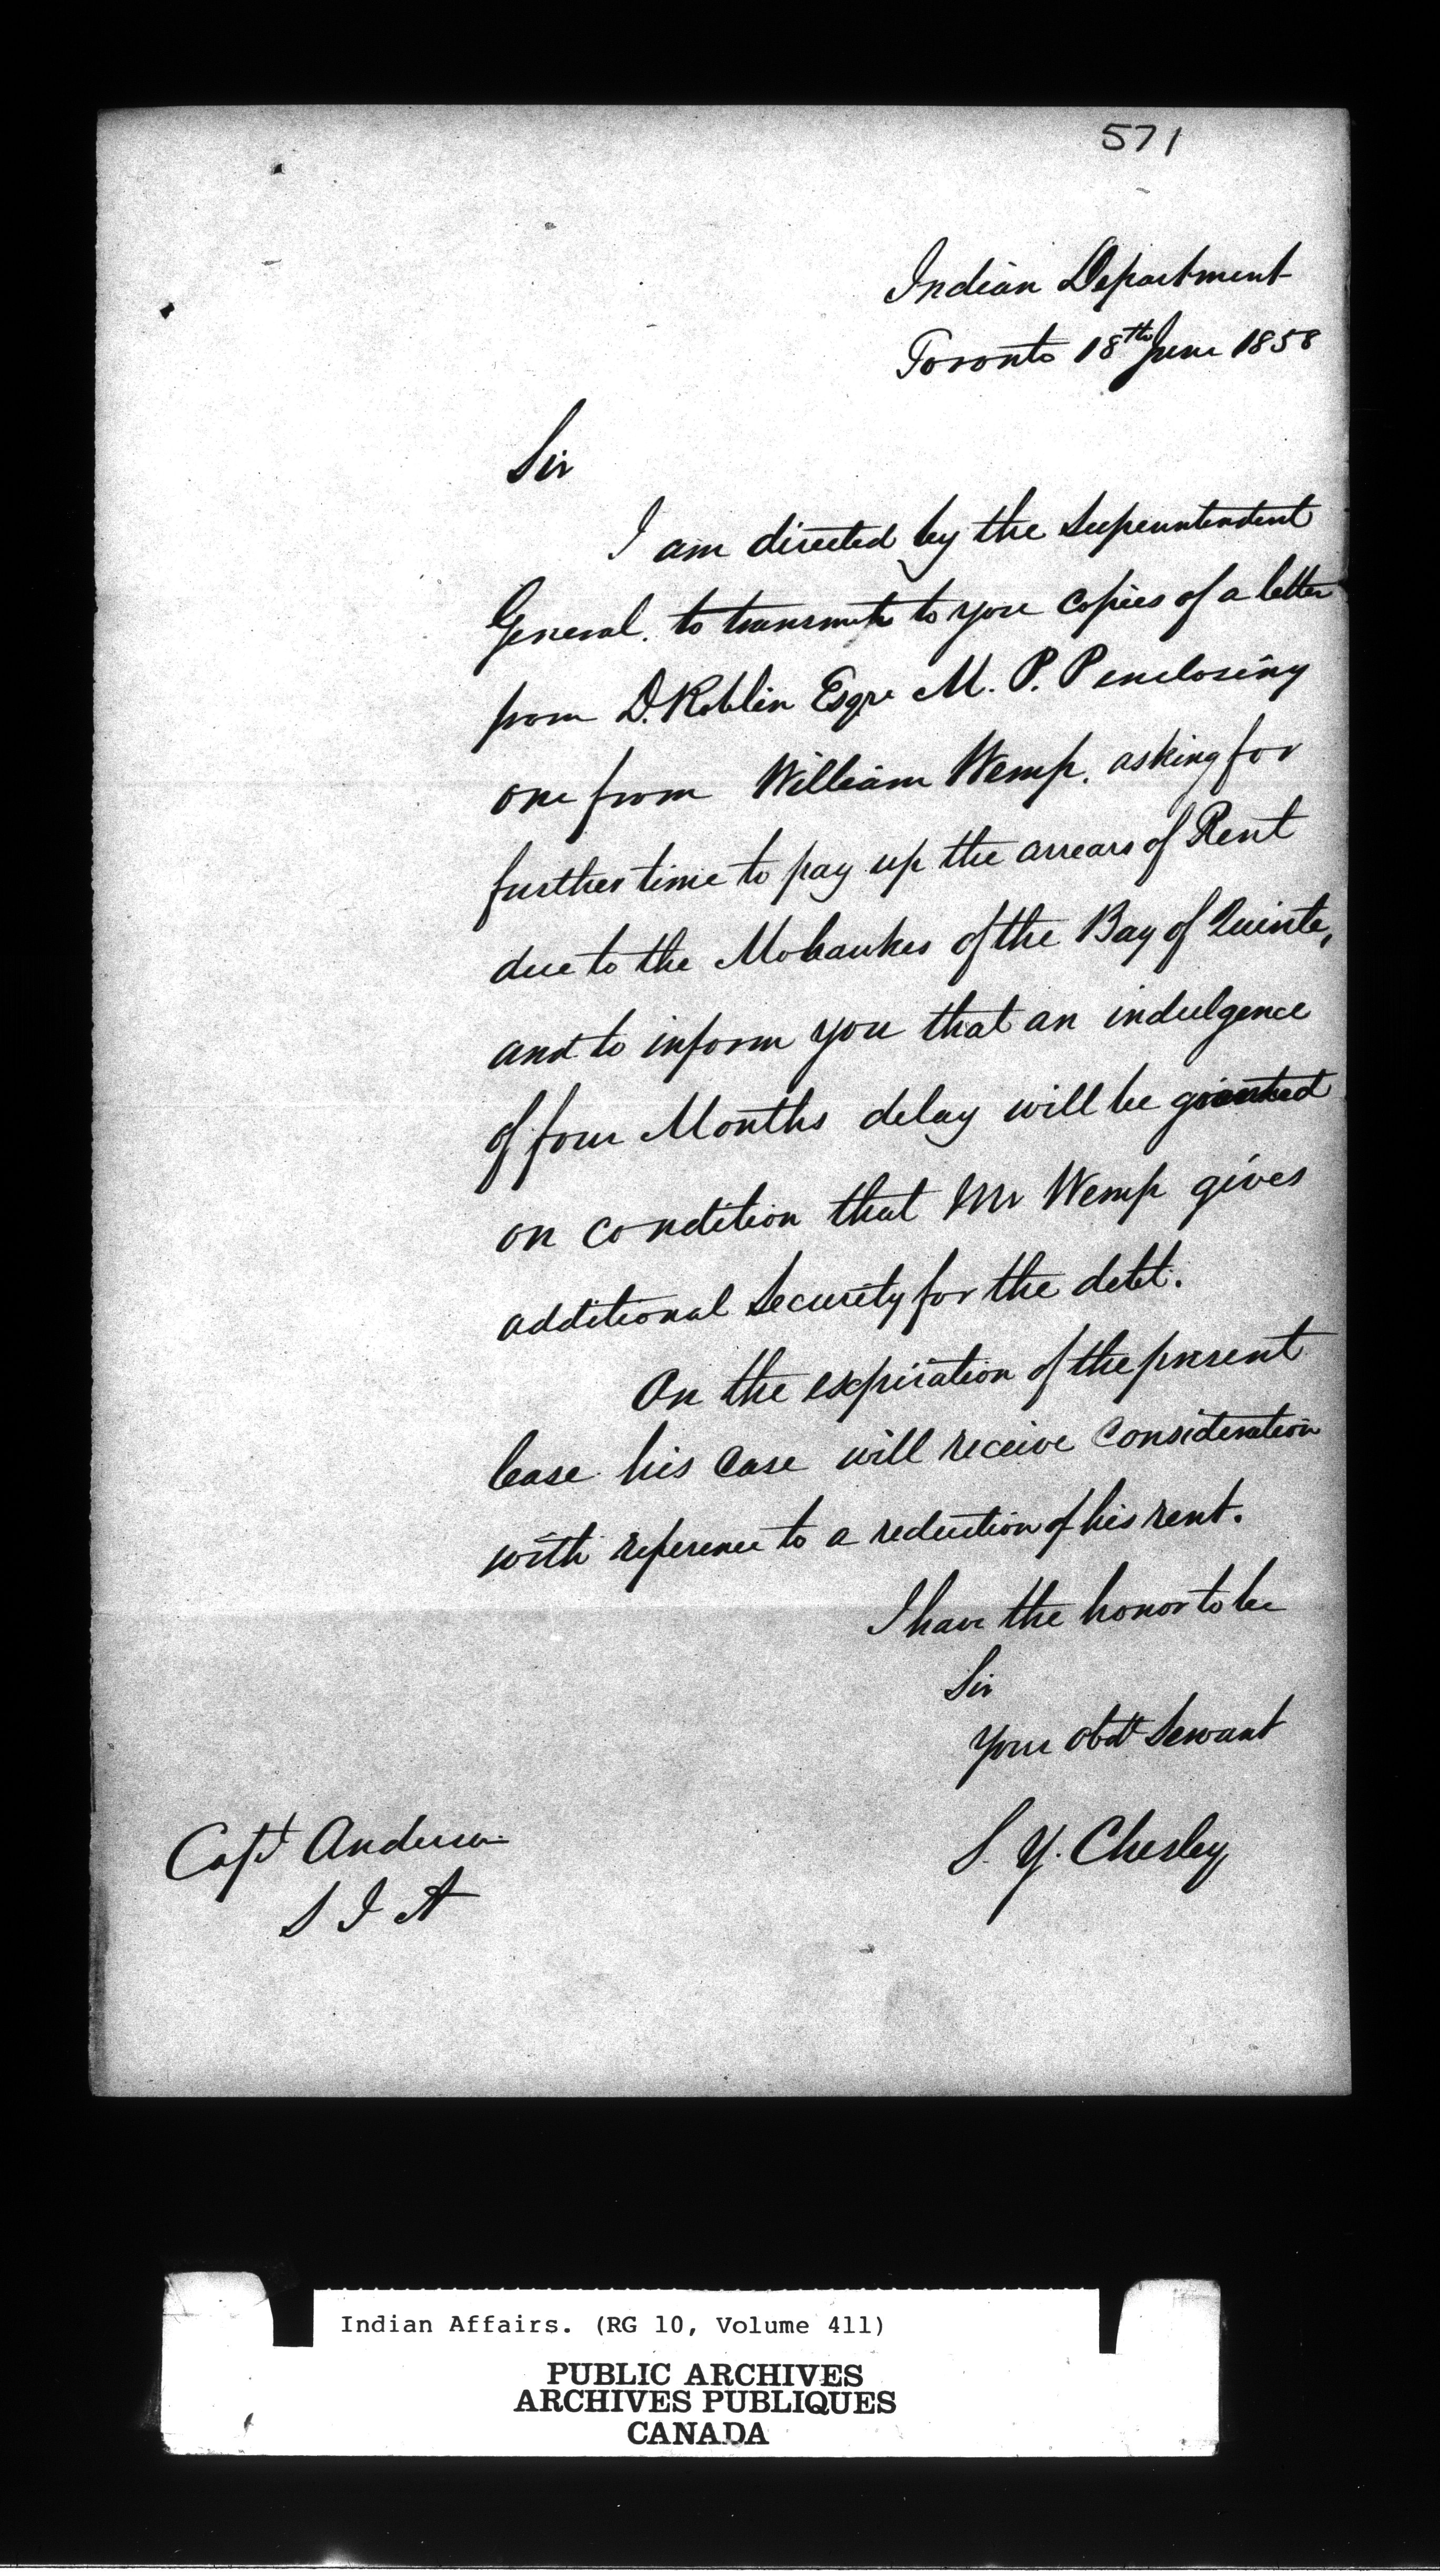 571
Indian Department
Toronto 18th June 1858
Sir
I am directed by the Superintendent
General. to transmit to you copies of a letter
from D. Roblin Esqre M. P. P enclosing
one from William Wemp. asking for
further time to pay up the arrears of Rent
due to the Mohawks of the Bay of Quinte,
and to inform you that an indulgence
of four Months delay will be granted
on condition that Mr Wemp gives
additional Security for the debt.
On the expiration of the present
lease his case will receive consideration
with reference to a reduction of his rent.
I have the honor to be
Sir
Your obdt Servant
S. Y. Chesley
Capt Anderson
S I A
Indian Affairs. (RG 10, Volume 411)
PUBLIC ARCHIVES
ARCHIVES PUBLIQUES
CANADA